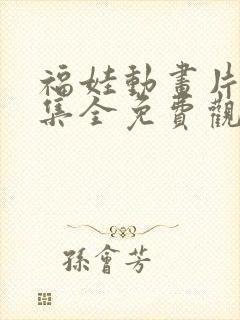 福娃動畫片
集全免費觀
孫會芳